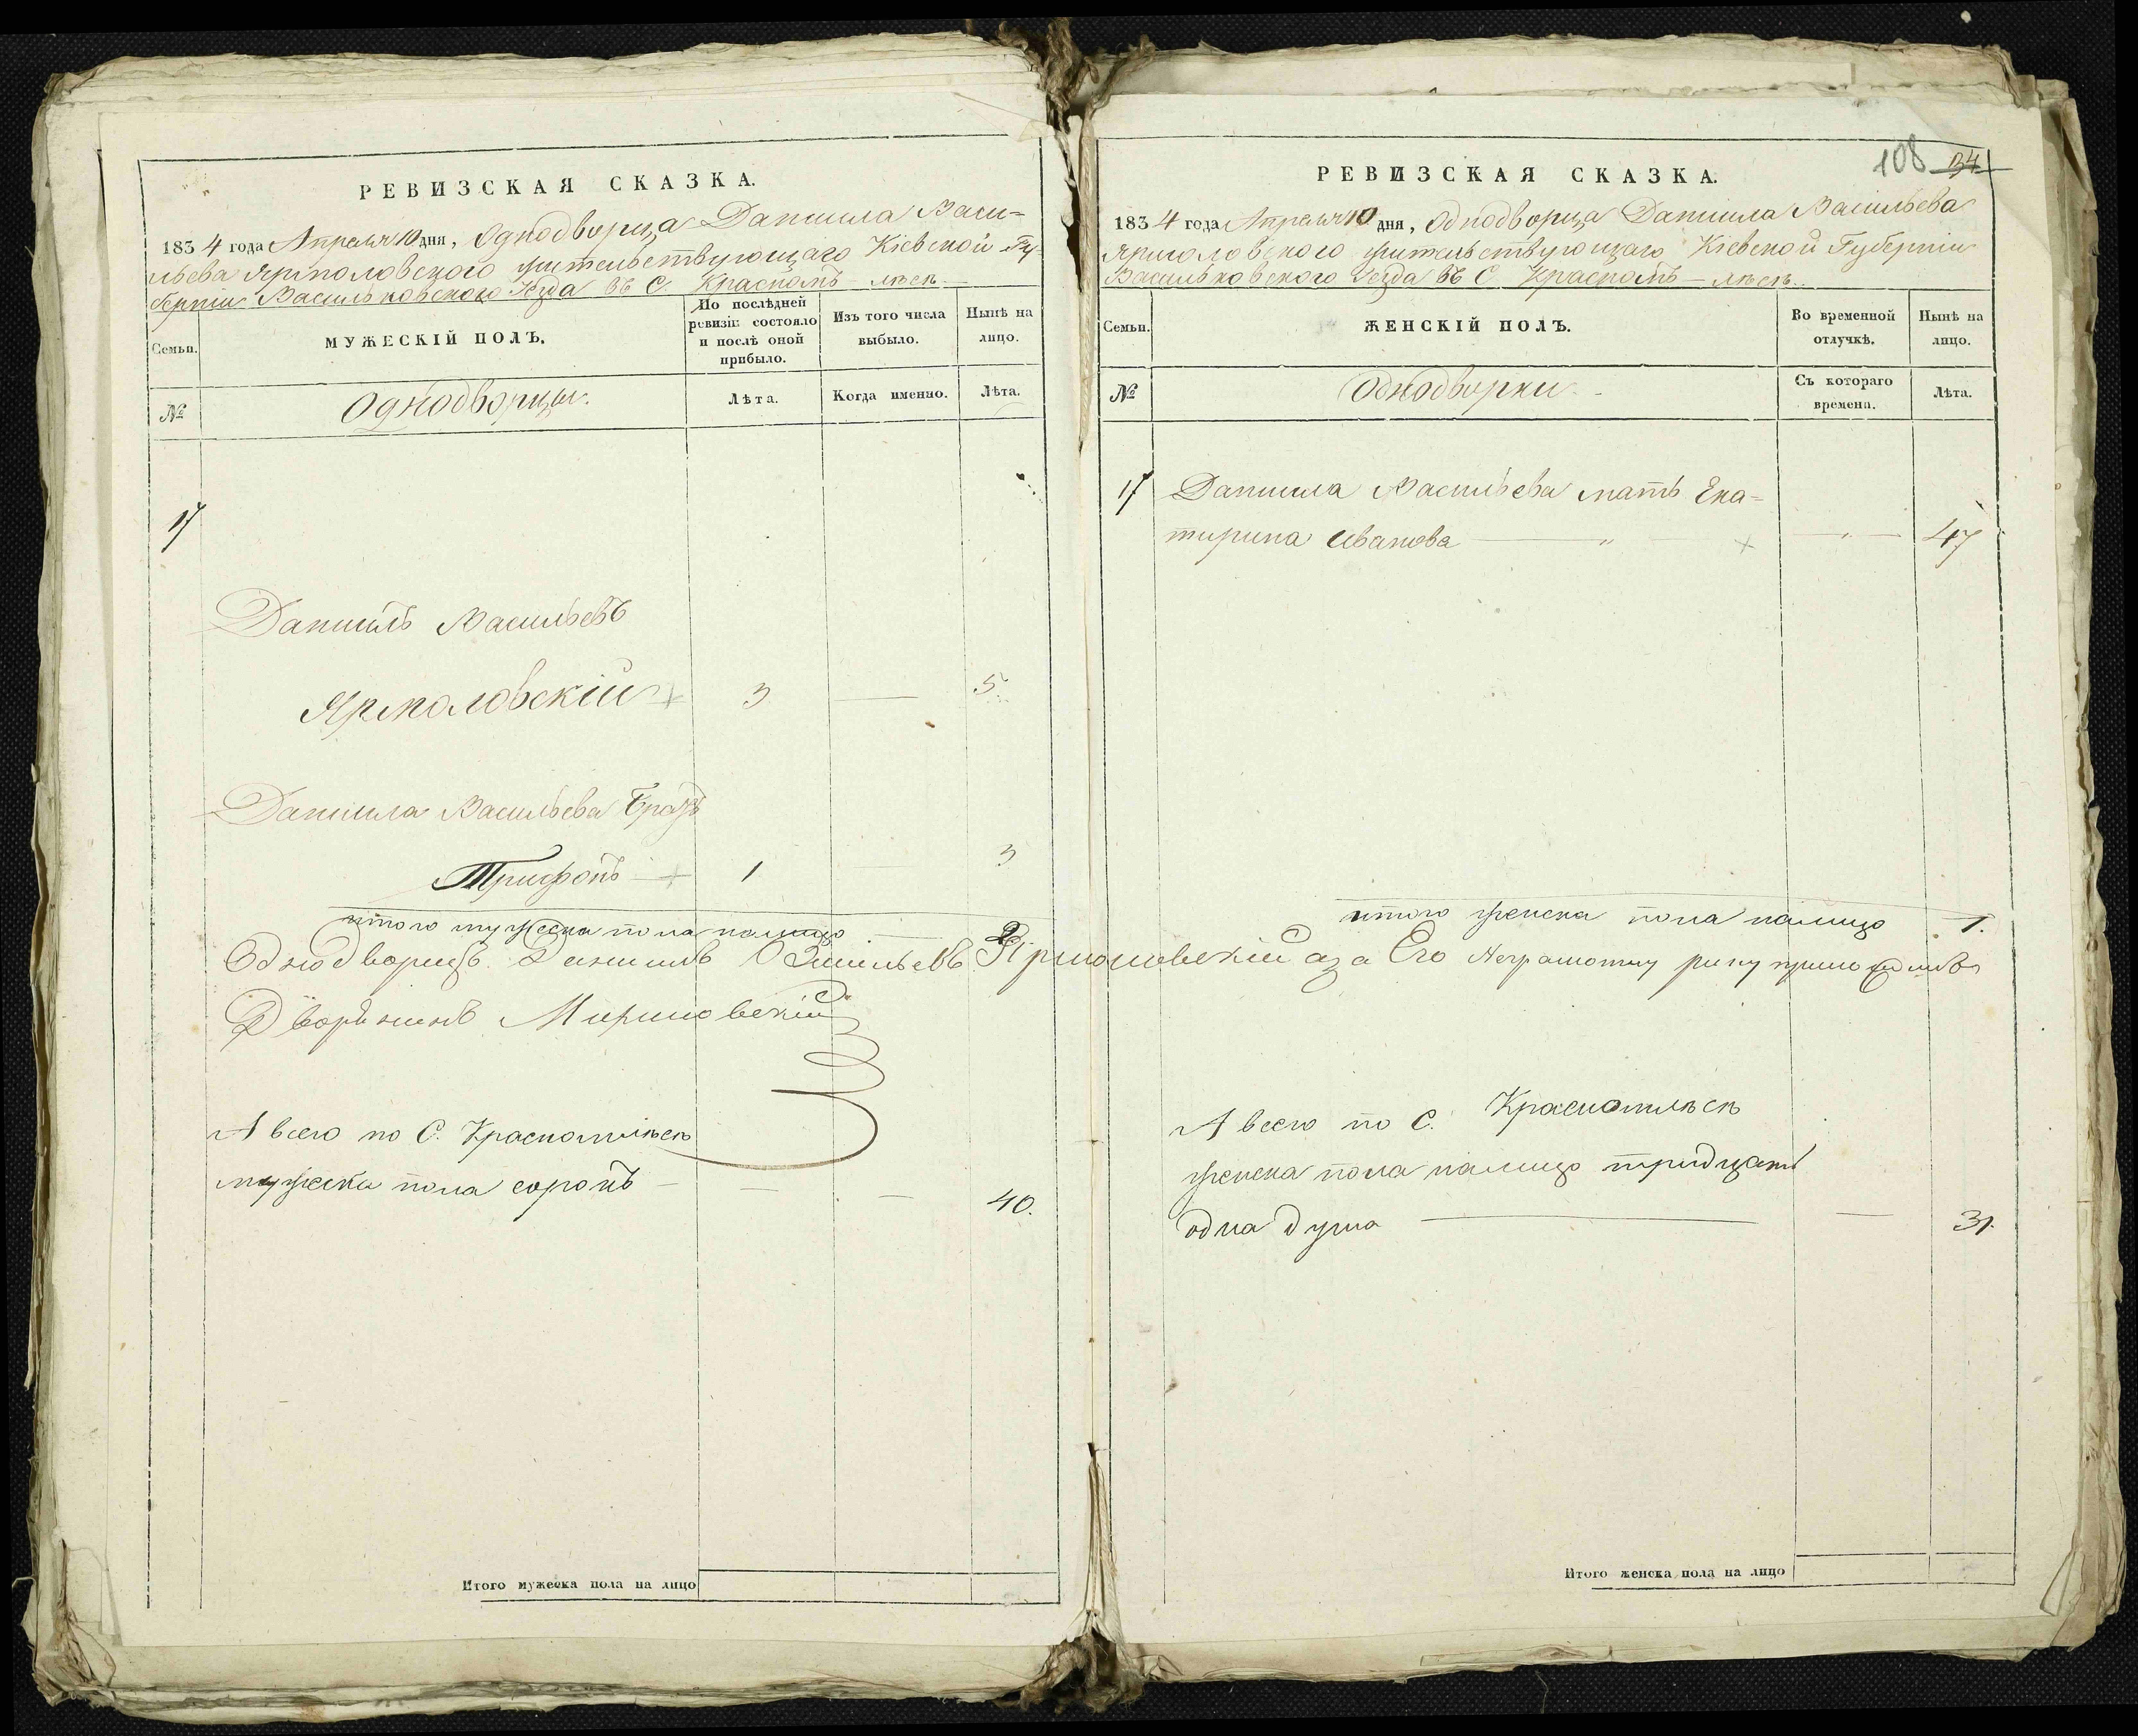 РЕВИЗСКАЯ СКАЗКА.
1834 года Апреля 10 дня, Однодворца Даниила Васи-
льева Ярмоловского жительствующаго Кіевской Гу-
берніи Васильковского Уезда въ С. Красномъ-лѣсѣ.
Семьи.
МУЖЕСКІЙ ПОЛЪ.
По послѣдней ревизіи состояло и послѣ оной прибыло.
Изъ того числа выбыло.
Нынѣ на лицо.
№
Однодворцы.
Лѣта.
Когда именно.
Лѣта.
17
Даниилъ Васильевъ
Ярмоловскій 3 — 5.
Даниила Васильева братъ
Трифонъ 1 — 3
итого мужеска пола налицо — 2
Однодворецъ Даниилъ Васильевъ Ярмоловскій а за Его Неграмотну руку приложилъ
Дворянинъ
А всего по С. Краснолѣсѣ
мужеска пола сорокъ — — — 40.
Итого мужеска пола на лицо
108 134
РЕВИЗСКАЯ СКАЗКА.
1834 года Апреля 10 дня, Однодворца Даниила Васильева
Ярмоловского жительствующаго Кіевской Губерніи
Васильковского Уезда въ С. Красномъ-лѣсѣ.
Семьи.
ЖЕНСКІЙ ПОЛЪ.
Во временной отлучкѣ.
Нынѣ на лицо.
№
Однодворки
Съ котораго времена.
Лѣта.
17 Даниила Васильева мать Ека-
тирина Иванова — " — " — 47
итого женска пола налицо 1.
А всего по С. Красномлѣсѣ
женска пола налицо тридцать
одна душа — — 31.
Итого женска пола на лицо